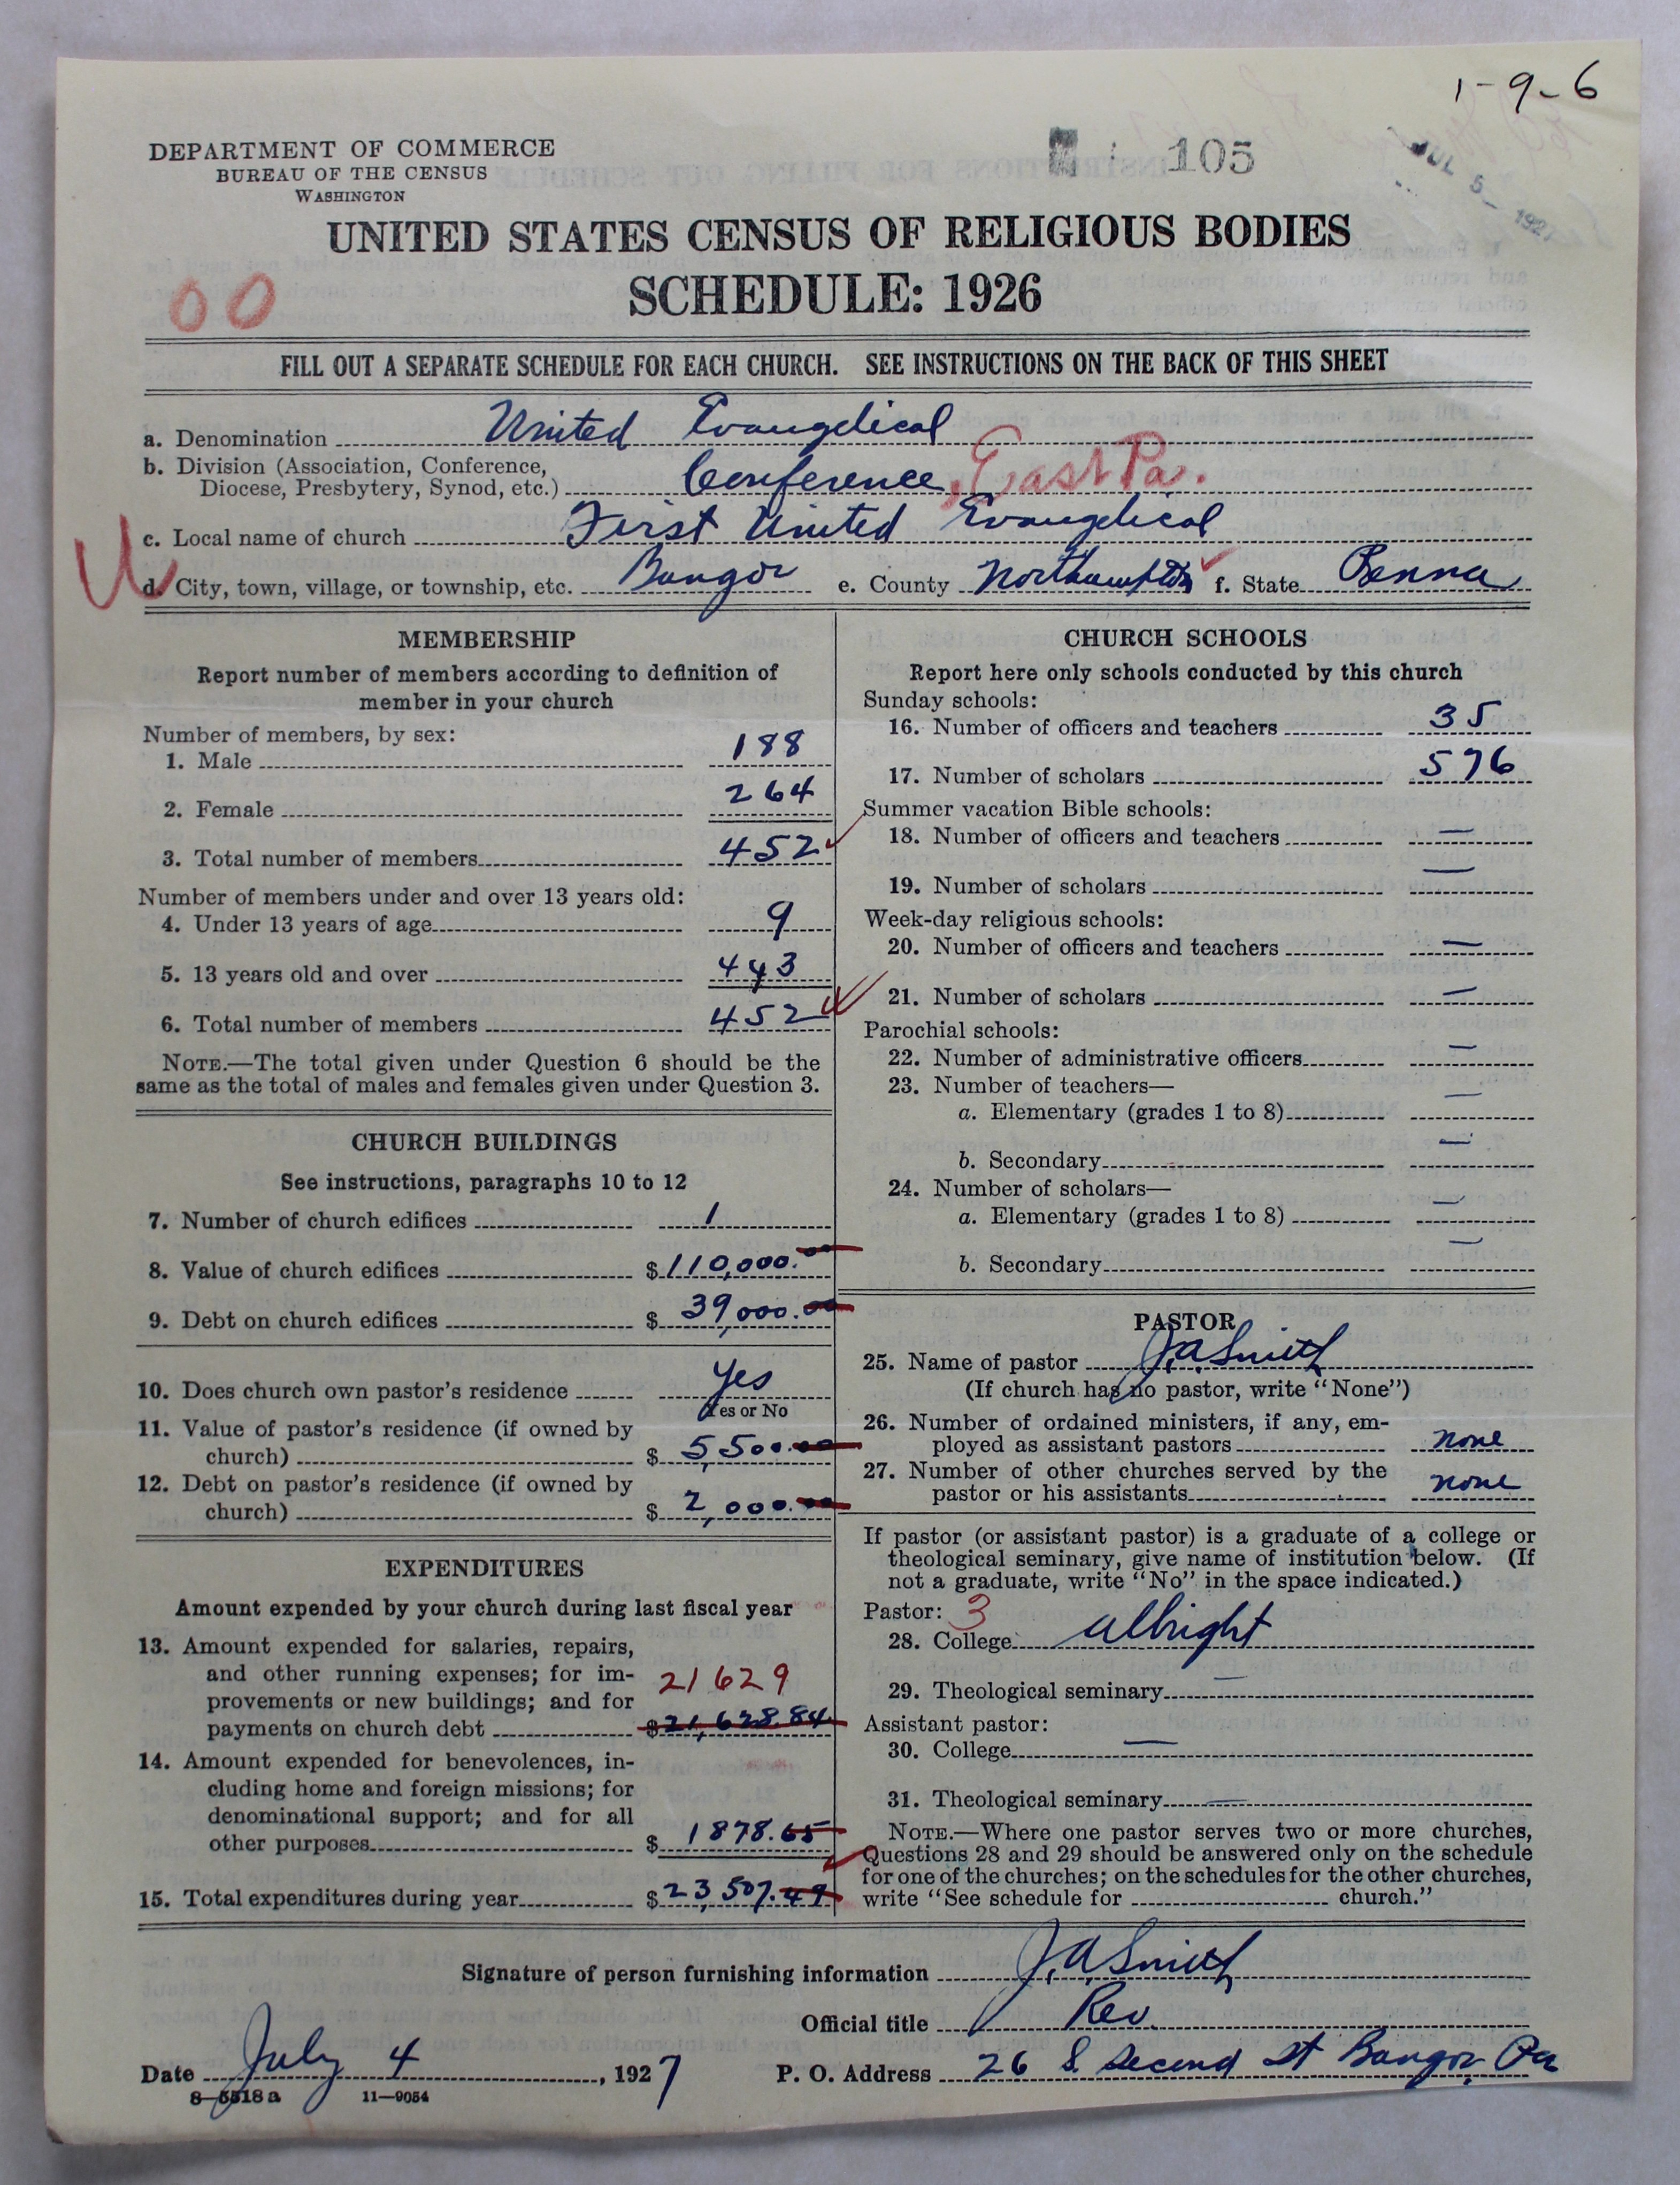 1-9-6
DEPARTMENT OF COMMERCE
BUREAU OF THE CENSUS
WASHINGTON
105
JUL 5 - 192
UNITED STATES CENSUS OF RELIGIOUS BODIES
SCHEDULE: 1926
00
FILL OUT A SEPARATE SCHEDULE FOR EACH CHURCH. SEE INSTRUCTIONS ON THE BACK OF THIS SHEET
a. Denomination United Evangelical
b. Division (Association, Conference,
Diocese, Presbytery, Synod, etc.) Conference, East Pa.
c. Local name of church First United Evangelical
d. City, town, village, or township, etc. Bangor e. County Northampton f. State Penna
MEMBERSHIP
Report number of members according to definition of
member in your church
Number of members, by sex:
1. Male 188
2. Female 264
3. Total number of members 452
Number of members under and over 13 years old:
4. Under 13 years of age 9
5. 13 years old and over 443
6. Total number of members 452
NOTE.—The total given under Question 6 should be the
same as the total of males and females given under Question 3.
CHURCH BUILDINGS
See instructions, paragraphs 10 to 12
7. Number of church edifices 1
8. Value of church edifices $110,000.00
9. Debt on church edifices $ 39,000.00
10. Does church own pastor's residence Yes
Yes or No
11. Value of pastor's residence (if owned by
church) $ 5,500.00
12. Debt on pastor's residence (if owned by
church) $ 2,000.00
EXPENDITURES
Amount expended by your church during last fiscal year
13. Amount expended for salaries, repairs,
and other running expenses; for im-
provements or new buildings; and for
21629
payments on church debt $21,628.84
14. Amount expended for benevolences, in-
cluding home and foreign missions; for
denominational support; and for all
other purposes $ 1878.65
15. Total expenditures during year $23,507.49
CHURCH SCHOOLS
Report here only schools conducted by this church
Sunday schools:
16. Number of officers and teachers 35
17. Number of scholars 576
Summer vacation Bible schools:
18. Number of officers and teachers —
19. Number of scholars —
Week-day religious schools:
20. Number of officers and teachers —
21. Number of scholars —
Parochial schools:
22. Number of administrative officers —
23. Number of teachers—
a. Elementary (grades 1 to 8) —
b. Secondary —
24. Number of scholars—
a. Elementary (grades 1 to 8) —
b. Secondary —
PASTOR
25. Name of pastor J.A. Smith
(If church has no pastor, write "None")
26. Number of ordained ministers, if any, em-
ployed as assistant pastors none
27. Number of other churches served by the
pastor or his assistants none
If pastor (or assistant pastor) is a graduate of a college or
theological seminary, give name of institution below. (If
not a graduate, write "No" in the space indicated.)
Pastor: 3
28. College Albright
29. Theological seminary —
Assistant pastor:
30. College —
31. Theological seminary —
NOTE.—Where one pastor serves two or more churches,
Questions 28 and 29 should be answered only on the schedule
for one of the churches; on the schedules for the other churches,
write "See schedule for church."
Signature of person furnishing information J.A. Smith
Official title Rev.
Date July 4, 1927 P. O. Address 26 S. Second St Bangor, Pa
8—5518 a 11—9054